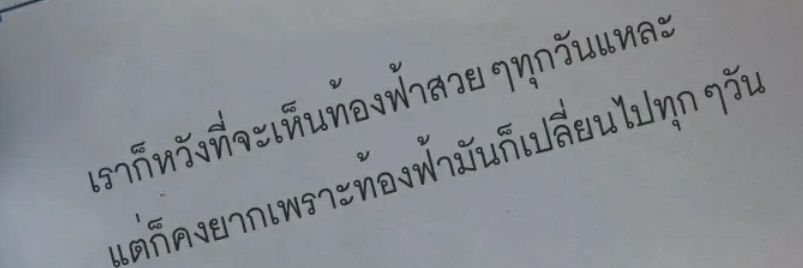 เราก็หวังที่จะเห็นท้องฟ้าสวย ๆทุกวันแหละ
แต่ก็คงยากเพราะท้องฟ้ามันก็เปลี่ยนไปทุก ๆวัน